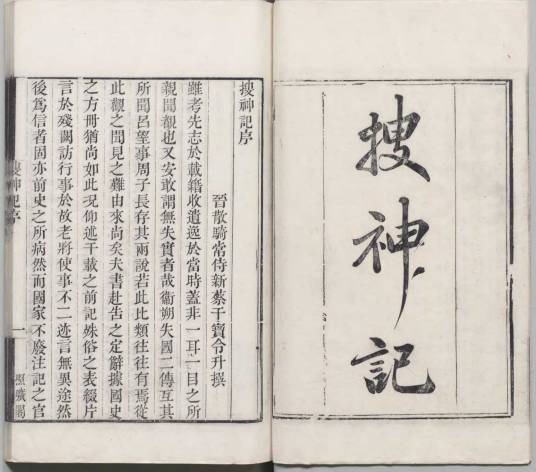 搜神記
搜神記序
晉散騎常侍新蔡干寶令升撰
雖考先志於載籍收遺逸於當時蓋非一耳一目之所
親聞覩也又安敢謂無失實者哉衞朔失國二傳互其
所聞呂望事周子長存其兩說若此比類往往有焉從
此觀之聞見之難由來尚矣夫書赴告之定辭據國史
之方冊猶尚如此况仰述千載之前記殊俗之表綴片
言於殘闕訪行事於故老將使事不二迹言無異途然
後爲信者固亦前史之所病然而國家不廢注記之官
搜神記序
一
照曠閣